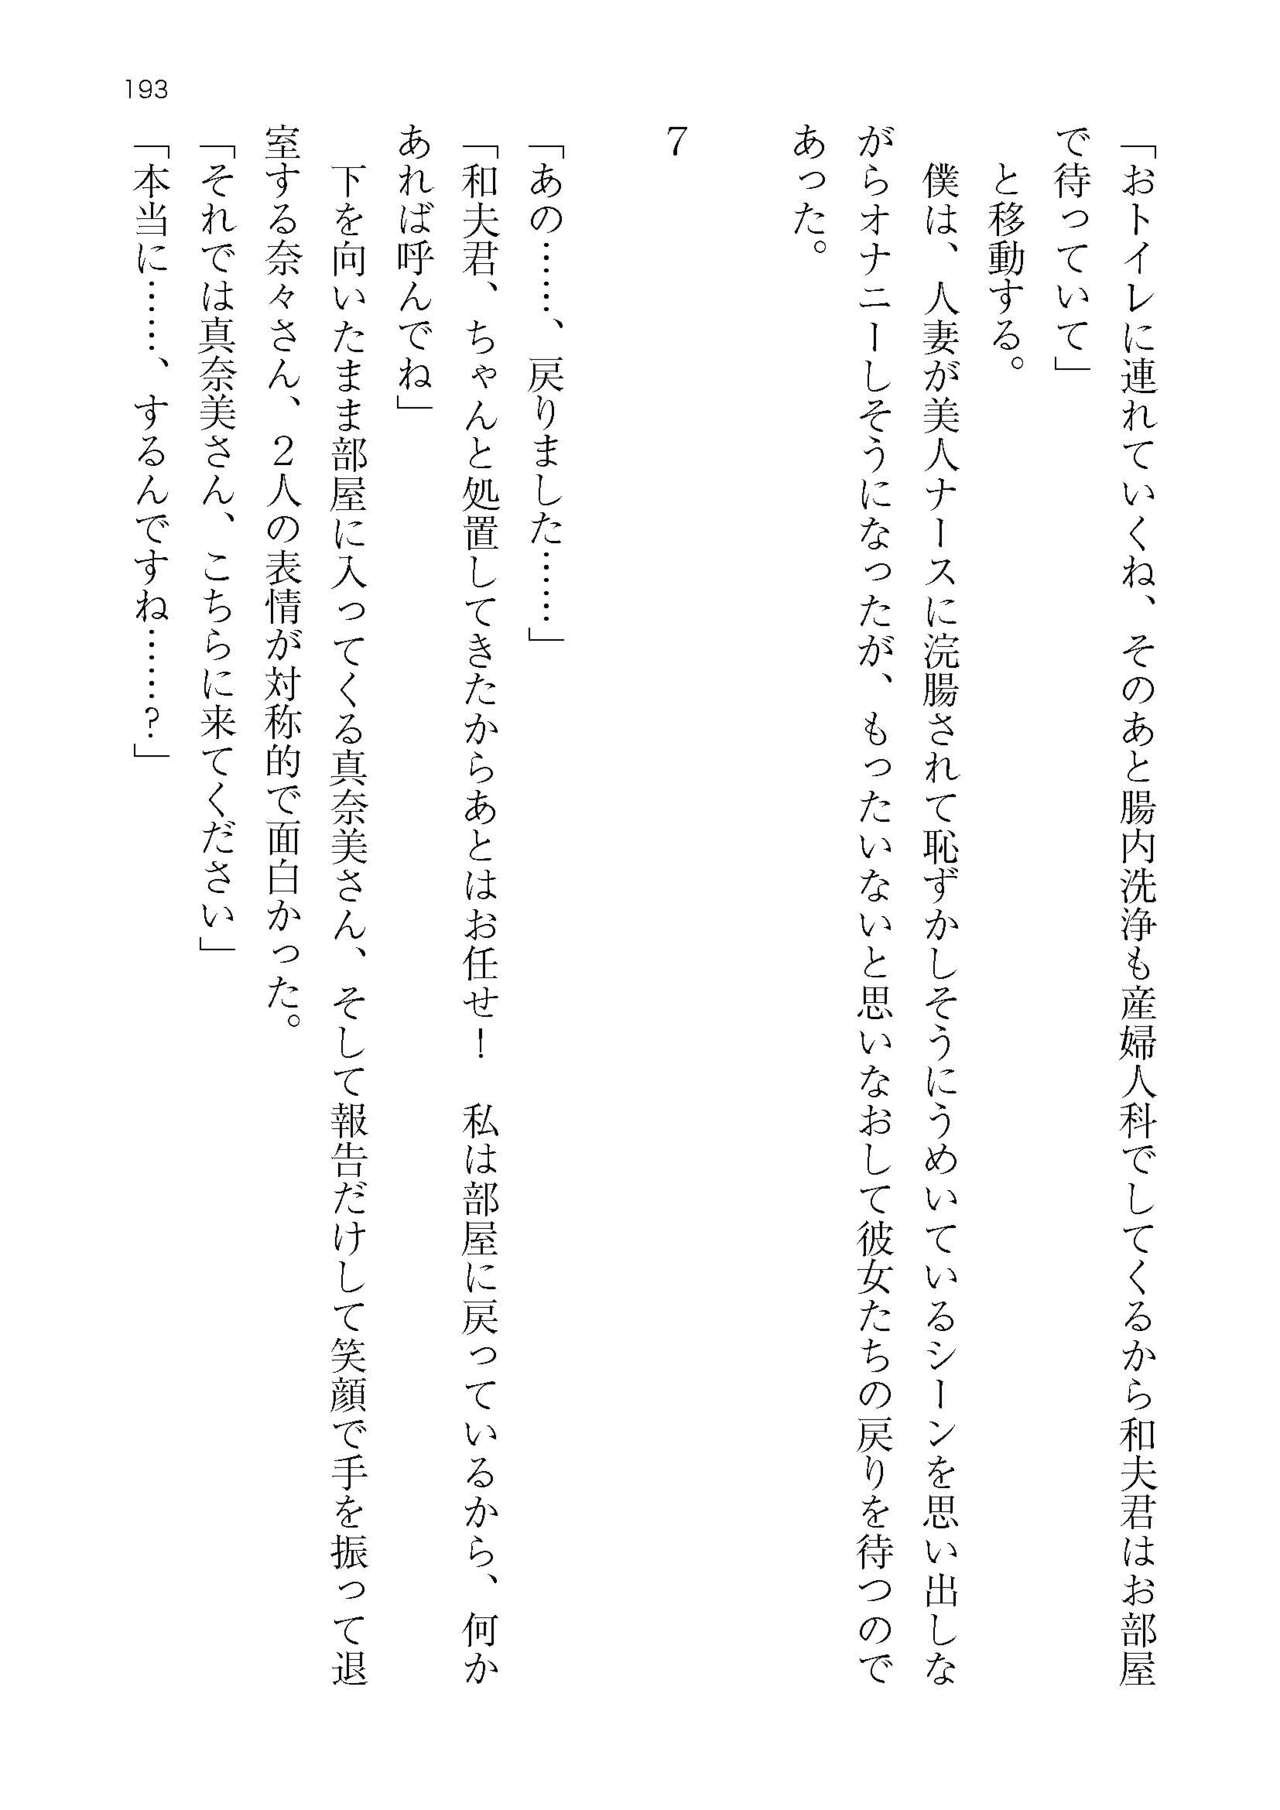 193
「おトイレに連れていくね、そのあと腸内洗浄も産婦人科でしてくるから和夫君はお部屋
で待っていて」
と移動する。
僕は、人妻が美人ナースに浣腸されて恥ずかしそうにうめいているシーンを思い出しな
がらオナニーしそうになったが、もったいないと思いなおして彼女たちの戻りを待つので
あった。
7
「あの……、戻りました……」
「和夫君、ちゃんと処置してきたからあとはお任せ！　私は部屋に戻っているから、何か
あれば呼んでね」
下を向いたまま部屋に入ってくる真奈美さん、そして報告だけして笑顔で手を振って退
室する奈々さん、２人の表情が対称的で面白かった。
「それでは真奈美さん、こちらに来てください」
「本当に……、するんですね……？」